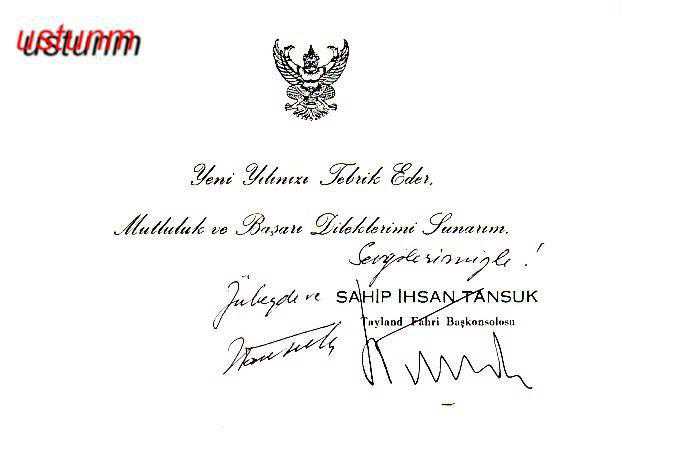 ustunm
Yeni Yılınızı Tebrik Eder,
Mutluluk ve Başarı Dileklerimi Sunarım.
Sevgilerimizle !
ve SAHİP İHSAN TANSUK
Tayland Fahri Başkonsolosu